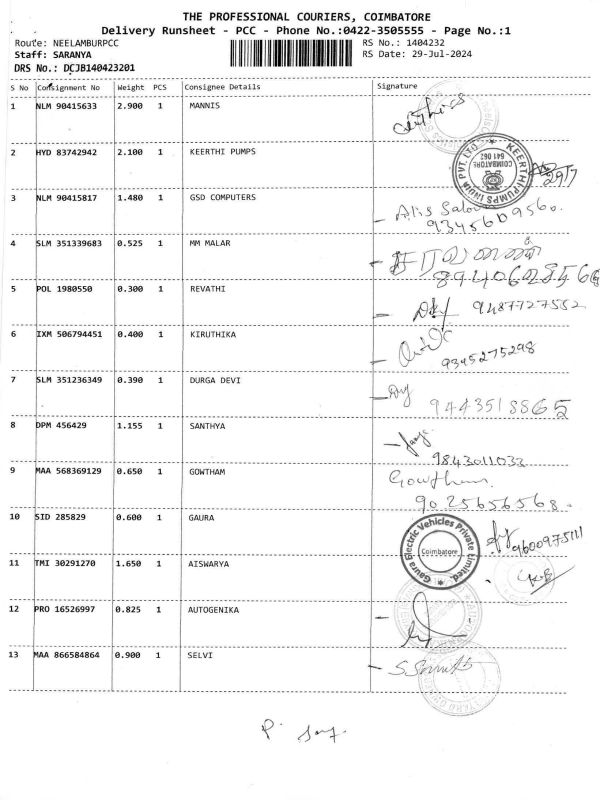 THE PROFESSIONAL COURIERS, COIMBATORE
Delivery Runsheet - PCC - Phone No.:0422-3505555 - Page No.:1
Route: NEELAMBURPCC
Staff: SARANYA
DRS No.: DCJB140423201
RS No.: 1404232
RS Date: 29-Jul-2024
S No Consignment No Weight PCS Consignee Details Signature
1 NLM 90415633 2.900 1 MANNIS
2 HYD 83742942 2.100 1 KEERTHI PUMPS
KEERTHI PUMPS INDIA PVT. LTD.
COIMBATORE
641 062
29/7
3 NLM 90415817 1.480 1 GSD COMPUTERS
4 SLM 351339683 0.525 1 MM MALAR
5 POL 1980550 0.300 1 REVATHI
9487727552
6 IXM 506794451 0.400 1 KIRUTHIKA
9345275298
7 SLM 351236349 0.390 1 DURGA DEVI
9443518865
8 DPM 456429 1.155 1 SANTHYA
9843011033
9 MAA 568369129 0.650 1 GOWTHAM
Gowtham
9025656568.
10 SID 285829 0.600 1 GAURA
Gaura Electric Vehicles Private Limited.
Coimbatore
9600975111
11 TMI 30291270 1.650 1 AISWARYA
12 PRO 16526997 0.825 1 AUTOGENIKA
13 MAA 866584864 0.900 1 SELVI